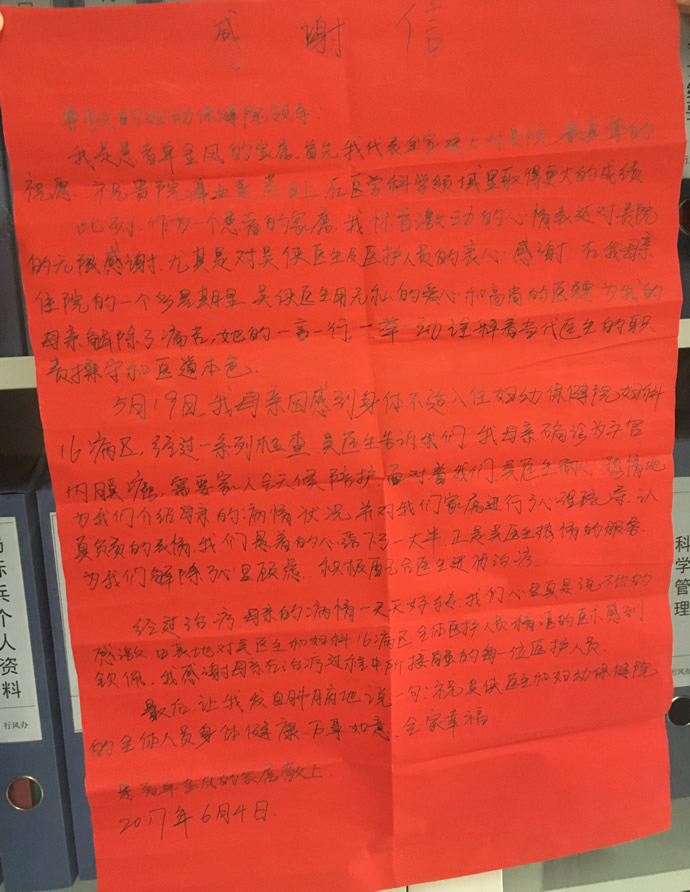 感谢信
尊敬的妇幼保健院领导:
我是患者单金凤的家属,首先我代表全家送上对贵院最真挚的
祝愿
在医学科学领域里取得更大的成绩
此刻,作为一个患者的家属,我怀着激动的心情表达对贵院
的无限感谢,尤其是对吴侠医生及医护人员的衷心感谢,在我母亲
住院的一个多星期里,吴侠医生用无私的爱心和高尚的医德为我的
母亲解除了痛苦,她的一言一行,一举一动诠释着当代医生的职
责操守和医道本色。
5月19日,我母亲因感到身体不适入住妇幼保健院妇科
16病区,经过一系列检查,吴医生告诉我们,我母亲确诊为子宫
内膜癌,需要家人全天候陪护,面对着我们吴医生耐心、热情地
为我们介绍母亲的病情状况,并对我们家属进行了心理疏导,认
真负责的表情,我们悬着的心落下了一大半,正是吴医生热情的解答
为我们解除了心里顾虑,积极配合医生进行治疗。
经过治疗母亲的病情一天天好转,我们心里真是说不尽的
感激,由衷地对吴医生和妇科16病区全体医护人员精湛的医术感到
钦佩,我感谢母亲在治病过程中所接触的每一位医护人员。
最后让我发自肺腑地说一句:祝吴侠医生和妇幼保健院
的全体人员身体健康,万事如意,全家幸福
患者单金凤的家属敬上
2017年6月4日
标兵个人资料
行风办
科学管理
行风办